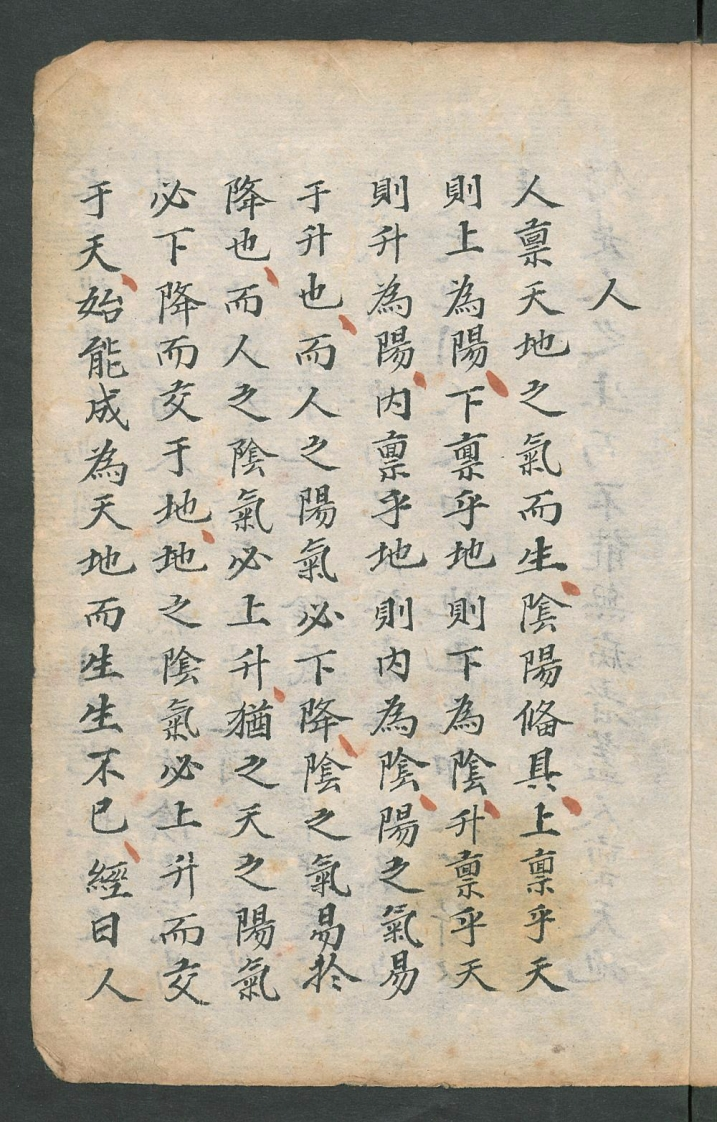 人
人禀天地之氣而生陰陽俻具上禀乎天
則上為陽下禀乎地則下為陰升禀乎天
則升為陽内禀乎地則内為陰陽之氣易
于升也而人之陽氣必下降陰之氣易於
降也而人之陰氣必上升猶之天之陽氣
必下降而交于地地之陰氣必上升而交
于天始能成為天地而生生不已經曰人